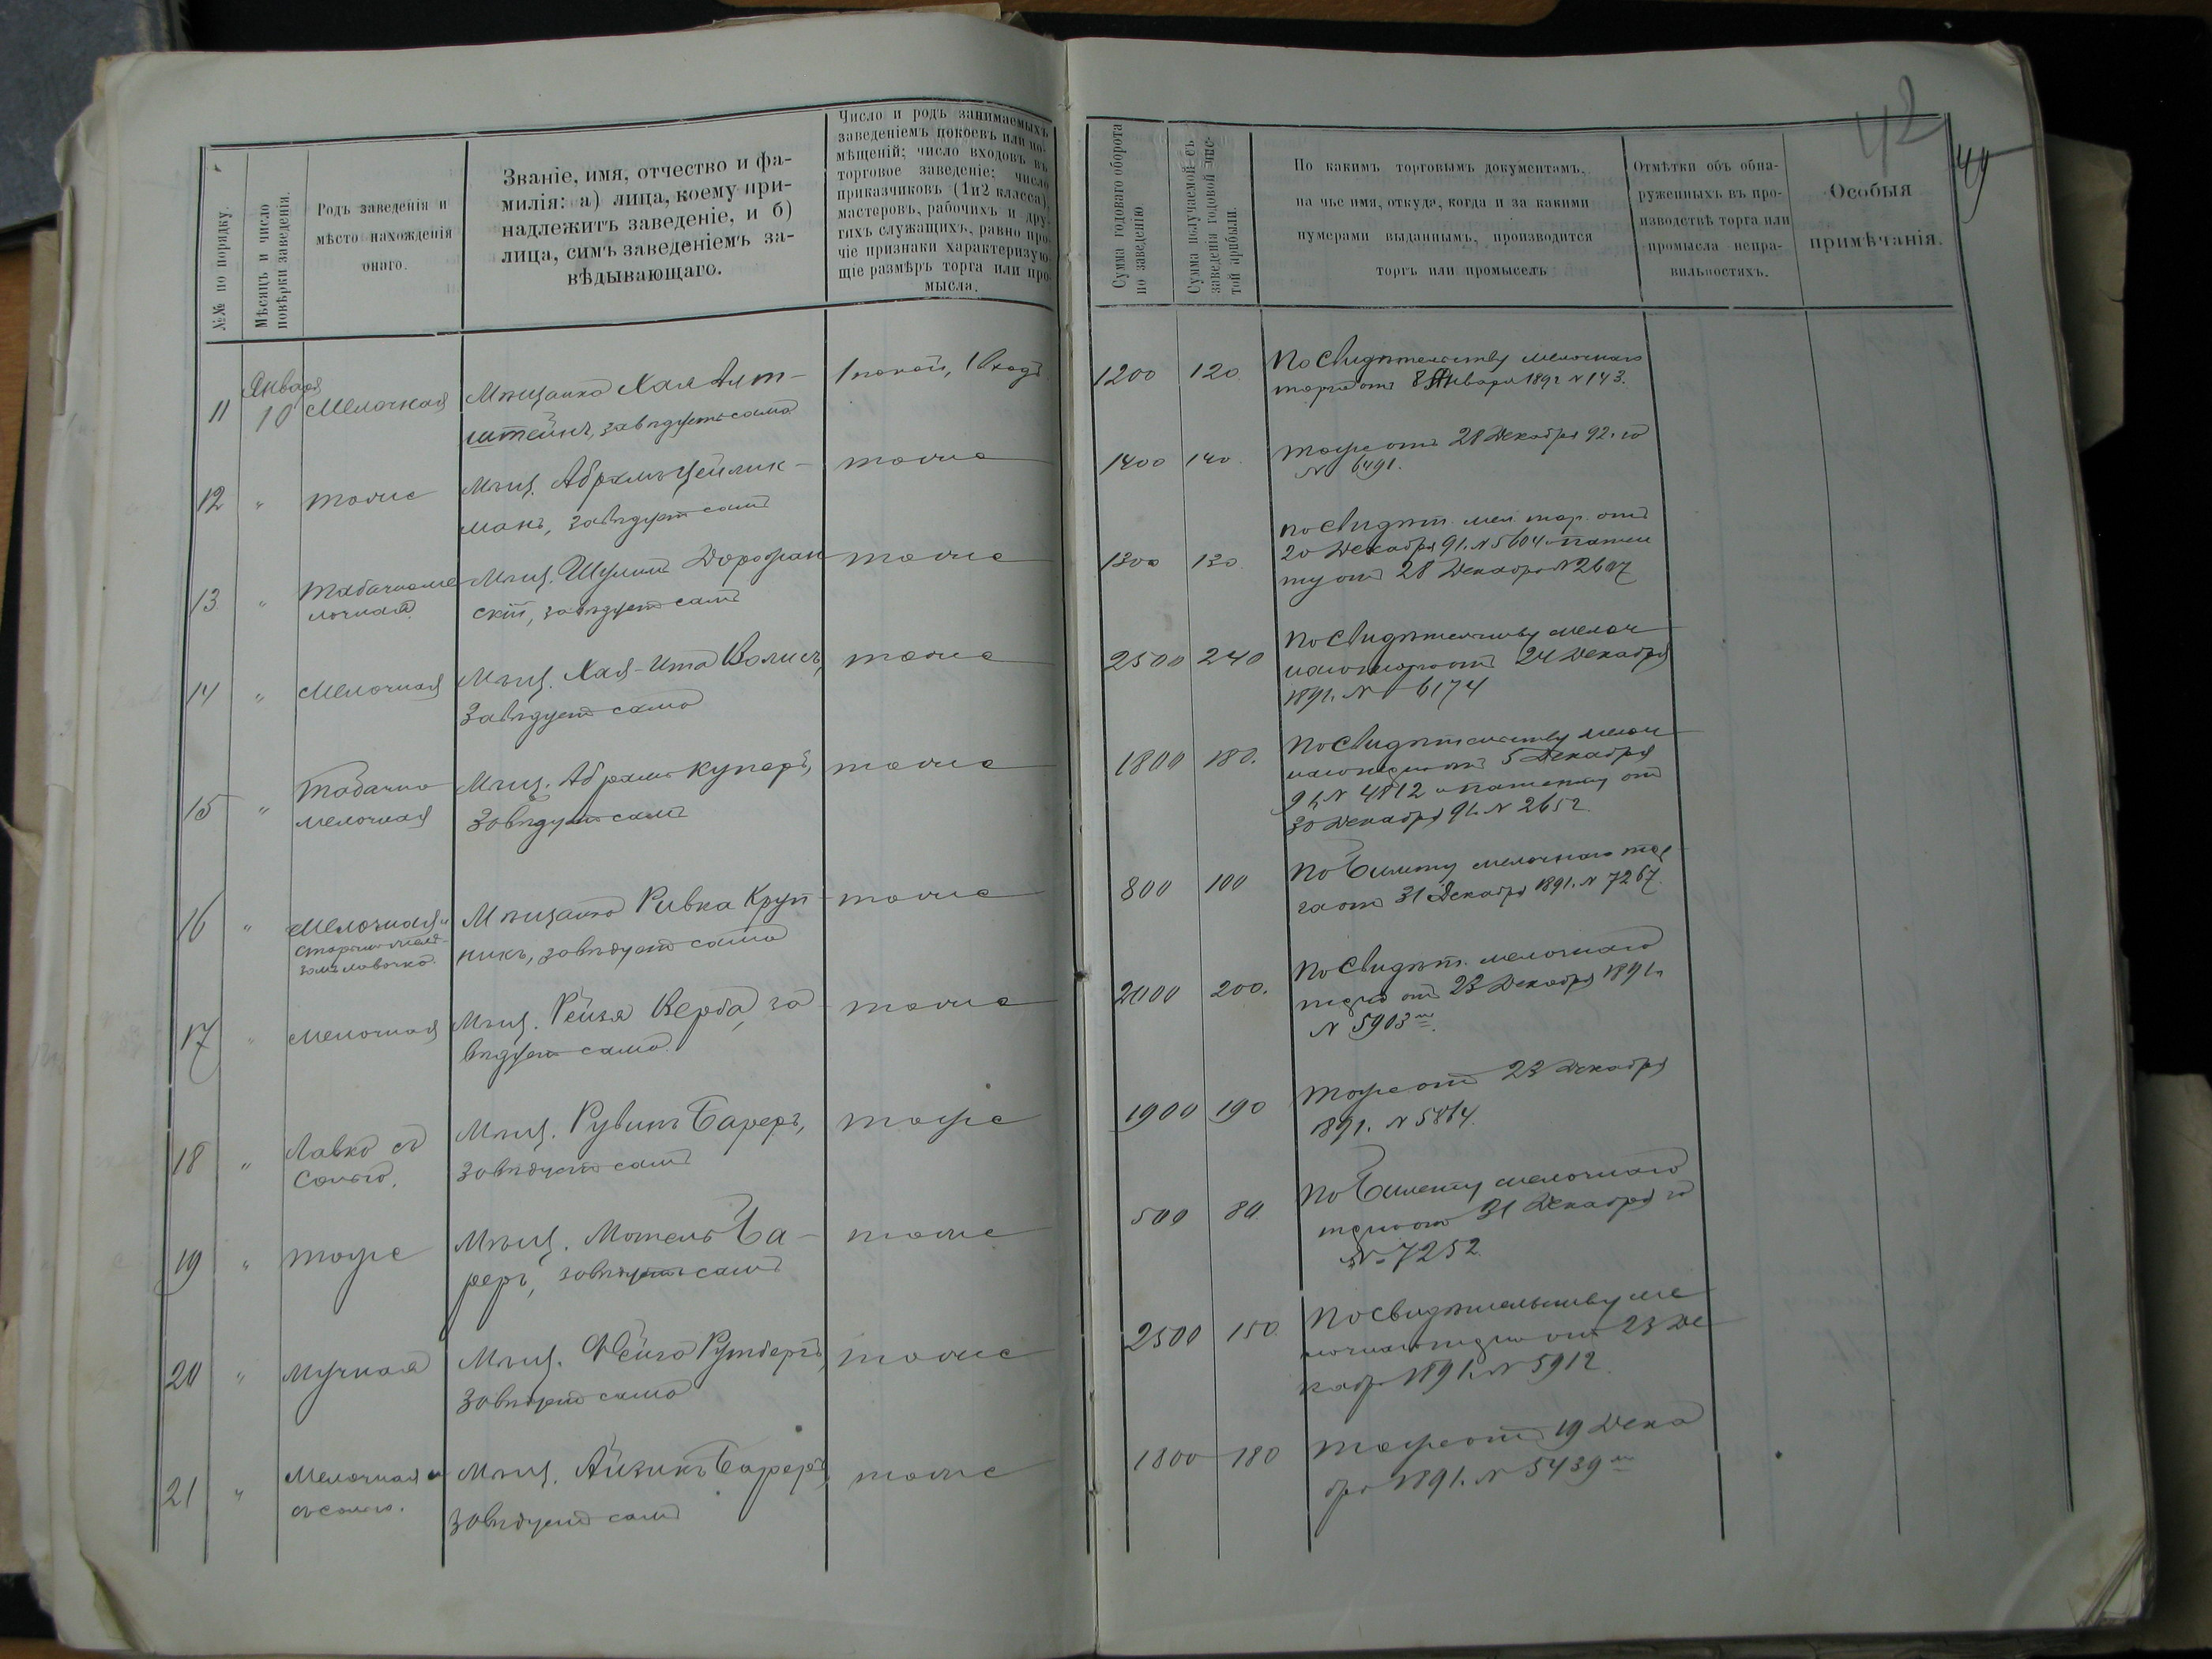 42
49
№№ по порядку.
Мѣсяцъ и число
повѣрки заведенія.
Родъ заведенія и
мѣсто нахожденія
онаго.
Званіе, имя, отчество и фа-
милія: а) лица, коему при-
надлежитъ заведеніе, и б)
лица, симъ заведеніемъ за-
вѣдывающаго.
Число и родъ занимаемыхъ
заведеніемъ покоевъ или по-
мѣщеній; число входовъ въ
торговое заведеніе; число
приказчиковъ (1 и 2 класса),
мастеровъ, рабочихъ и дру-
гихъ служащихъ, равно про-
чіе признаки характеризую-
щіе размѣръ торга или про-
мысла.
Сумма годоваго оборота
по заведенію
Сумма получаемой съ
заведенія годовой чис-
той прибыли.
По какимъ торговымъ документамъ,
на чье имя, откуда, когда и за какими
нумерами выданнымъ, производится
торгъ или промыселъ
Отмѣтки объ обна-
руженныхъ въ про-
изводствѣ торга или
промысла непра-
вильностяхъ.
Особыя
примѣчанія.
11
Января
10
Мелочная
Мѣщанка Хая Вит-
штейнъ, завѣдуетъ сама
1 покой, 1 входъ
1200
120
По свидѣтельству мелочнаго
торга отъ 8 Января 1892 N 143.
12
"
тоже
Мѣщ. Абрамъ Цейлик-
манъ, завѣдуетъ самъ
тоже
1400
140
тоже отъ 28 Декабря 92. го
N 6491.
13
"
Табачноме
лочная
Мѣщ. Шулимъ Дорожан
скій, завѣдуетъ самъ
тоже
1300
130
по свидѣт. мел. тор. отъ
20 Декабря 91. N 5604 и патен
ту отъ 28 Декабря N 2607
14
"
Мелочная
Мѣщ. Хая-Ита Волисъ,
Завѣдуетъ сама
тоже
2500
240
По свидѣтельству мелоч
наго торга отъ 24 Декабря
1891. N 6174
15
"
Табачно
мелочная
Мѣщ. Абрамъ Куперъ,
Завѣдуетъ самъ
тоже
1800
180.
По свидѣтельству мелоч
наго торга отъ 5 Декабря
91. N 4812 и патенту отъ
30 Декабря 91. N 2652
16
"
Мелочная и
Мѣщанка Ривка Круп
никъ, завѣдуетъ сама
тоже
800
100
По билету мелочнаго тор
га отъ 31 Декабря 1891. N 7267.
17
"
Мелочная
Мѣщ. Рейзя Верба, за
вѣдуетъ сама.
тоже
2000
200.
По свидѣт. мелочнаго
торга отъ 23 Декабря 1891 г.
N 5903
18
"
Лавка съ
Солью.
Мѣщ. Рувинъ Бареръ,
Завѣдуетъ самъ
тоже
1900
190
Тоже отъ 23 Декабря
1891. N 5864.
19
"
тоже
Мѣщ. Мотель Ба-
реръ, завѣдуетъ самъ
тоже
500
80
По билету мелочнаго
торга отъ 31 Декабря го
N 7252.
20
"
Мучная
Мѣщ. Фейга Рутбергъ,
Завѣдуетъ сама
тоже
2500
150
По свидѣтельству ме
лочнаго торга отъ 23 Де
кабря 1891. N 5912.
21
"
Мелочная и
съ солью.
Мѣщ. Айзикъ Бареръ,
завѣдуетъ самъ
тоже
1800
180
Тоже отъ 19 Дека
бря 1891. N 5439